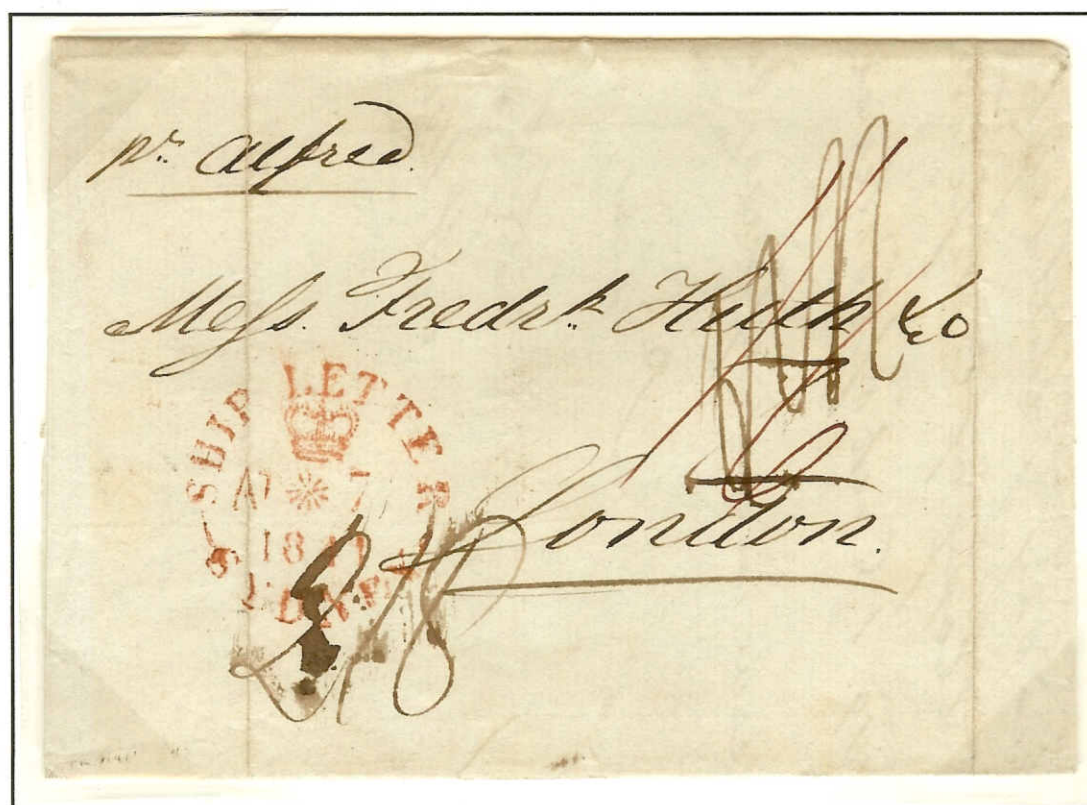 pr. Alfred.
Mess. Fredrk. Huth & Co
London.
SHIP LETTER
AP 7
18
SYDNEY